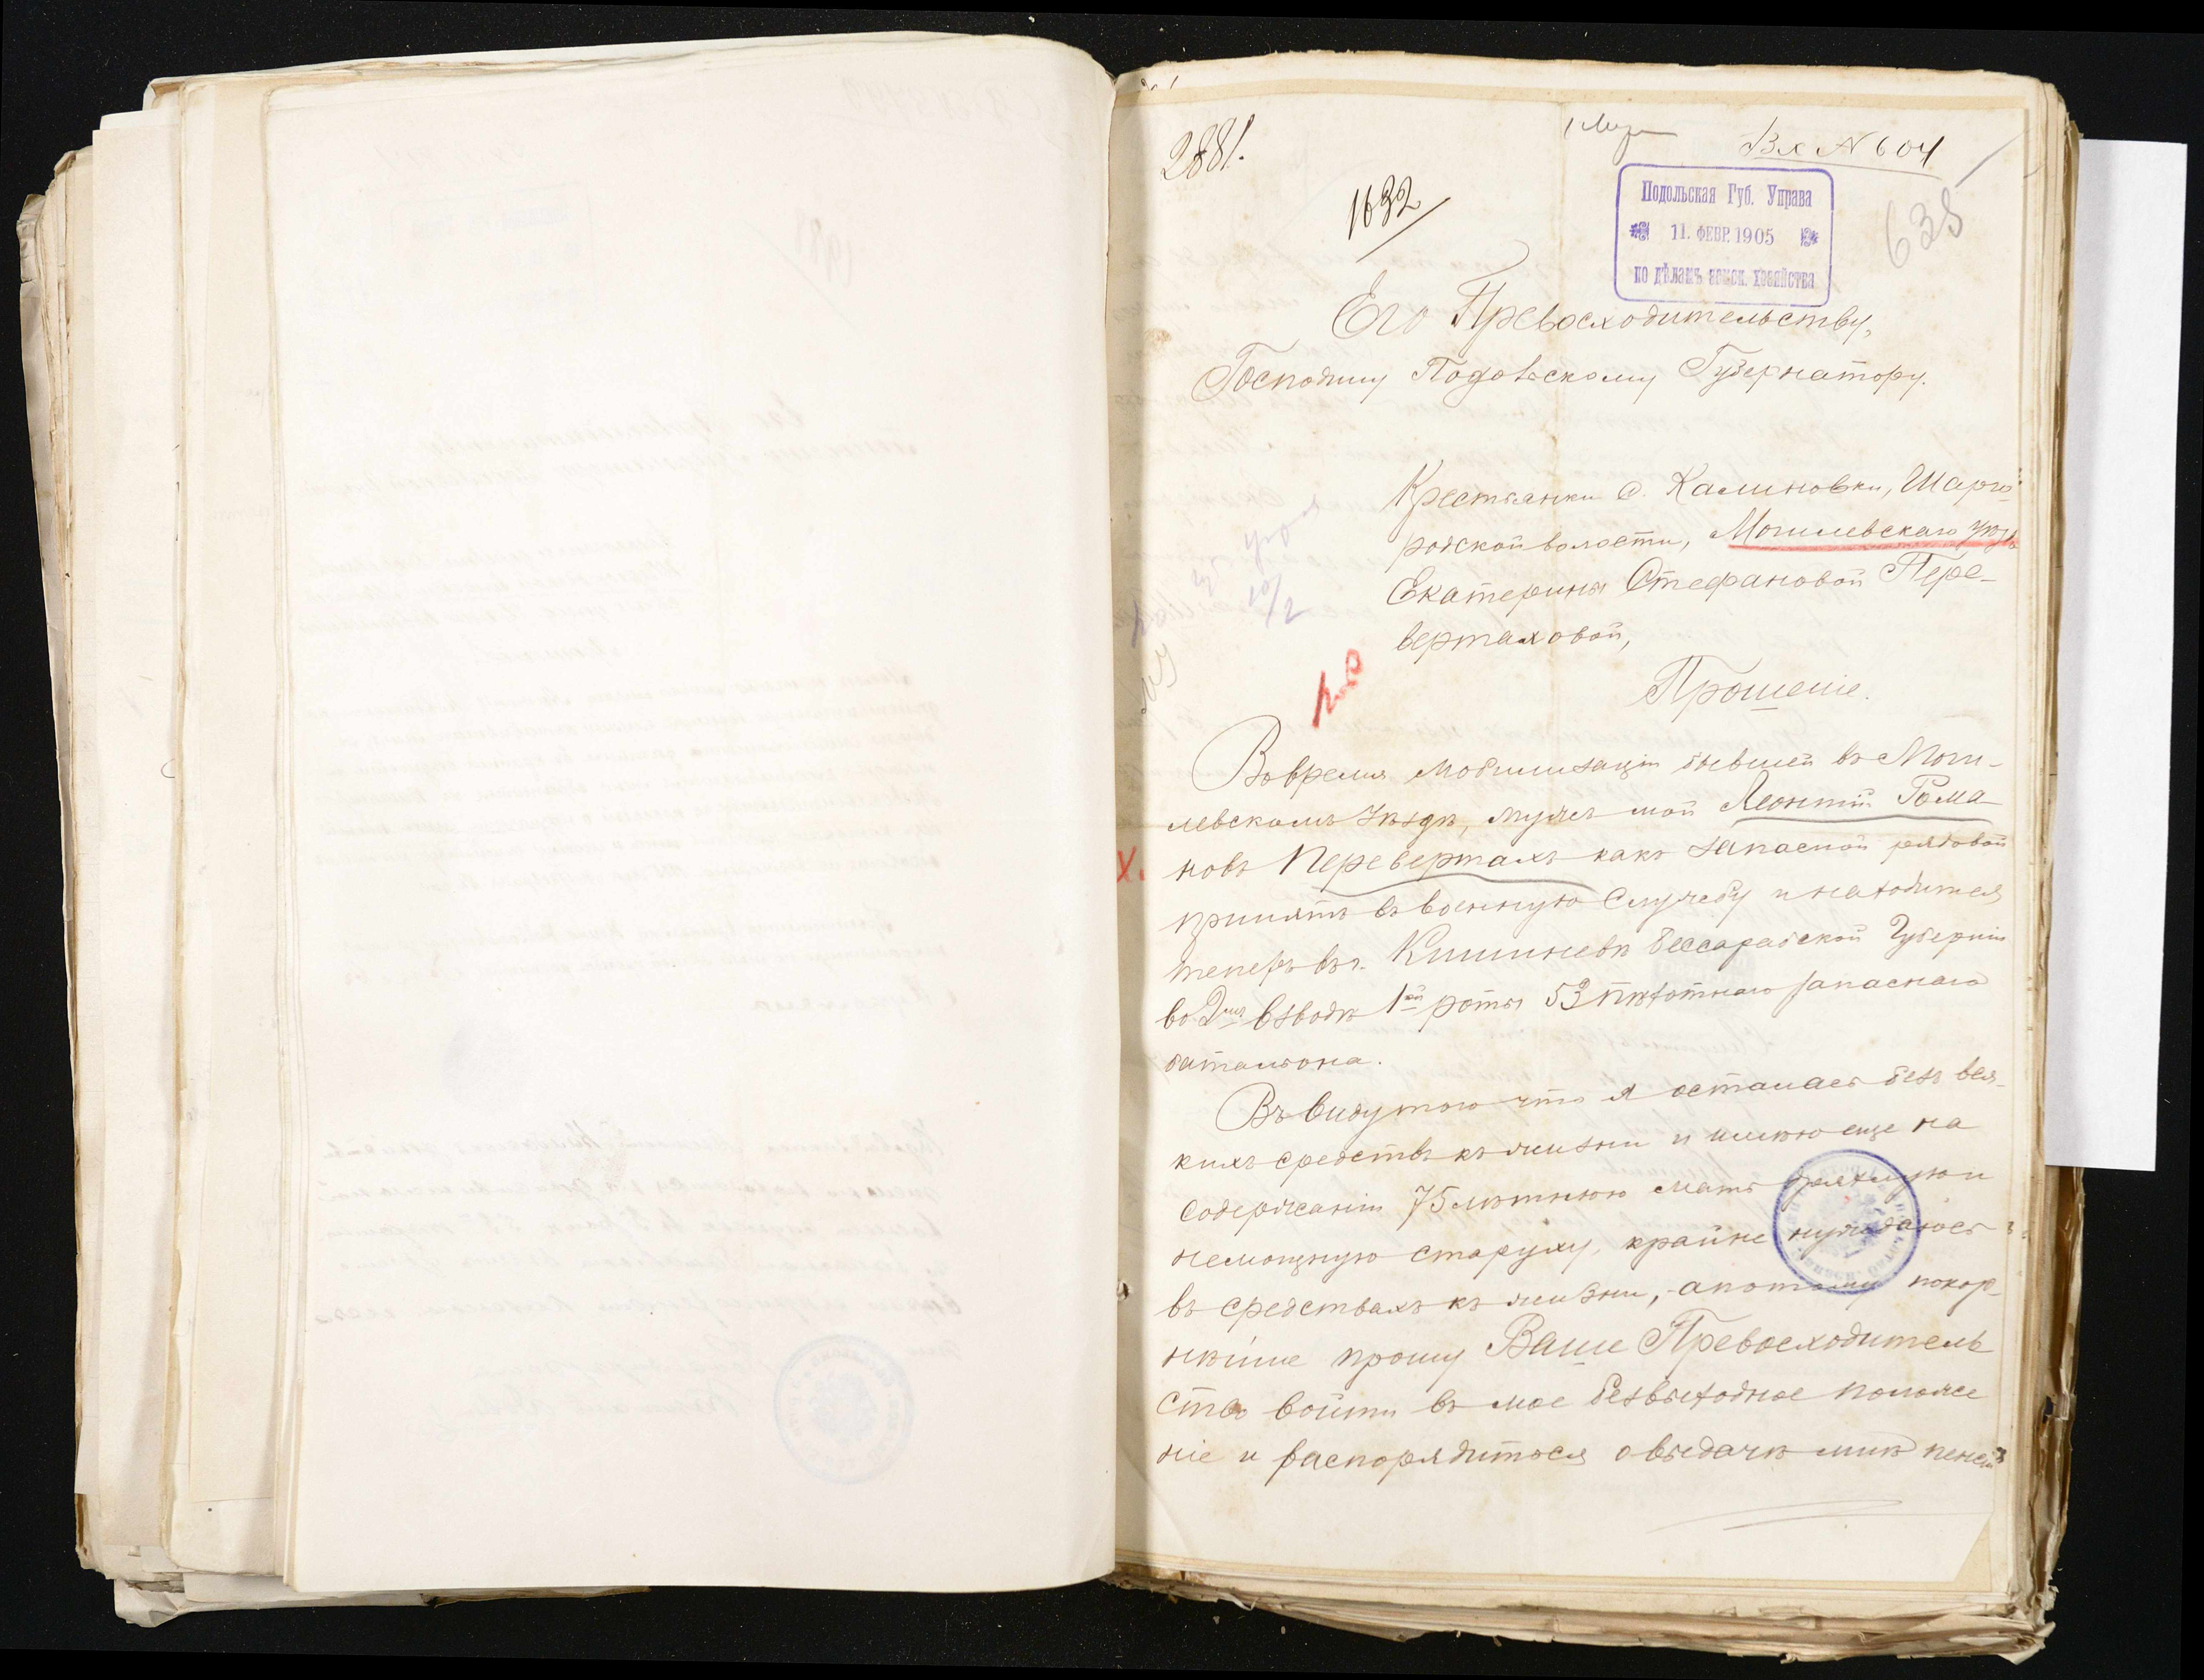 2881.
1632
Вх № 604
Подольская Губ. Управа
11. ФЕВР. 1905
по дѣламъ земск. хозяйства
638
Его Превосходительству,
Господину Подольскому Губернатору.
Крестьянки с. Калиновки, Шарго-
родской волости, Могилевскаго уѣзда
Екатерины Стефановой Пере-
вертаховой,
Прошеніе.
Во время мобилизаціи бывшей въ Моги-
левскомъ уѣздѣ, мужъ мой Леонтій Рома-
новъ Перевертахъ какъ запасной рядовой
принятъ въ военную службу и находится
теперь въ г. Кишиневѣ Бессарабской Губерніи
во 2мъ взводѣ 1ой роты 53 пѣхотнаго запаснаго
баталіона.
Въ виду того что я осталась безъ вся-
кихъ средствъ къ жизни и имѣю еще на
содержаніи 75 лѣтнюю мать дряхлую и
немощную старуху, крайне нуждаюсь
въ средствахъ къ жизни, а потому покор-
нѣйше прошу Ваше Превосходитель
ство войти въ мое безвыходное положе
ніе и распорядиться о выдачѣ мнѣ пенсіи